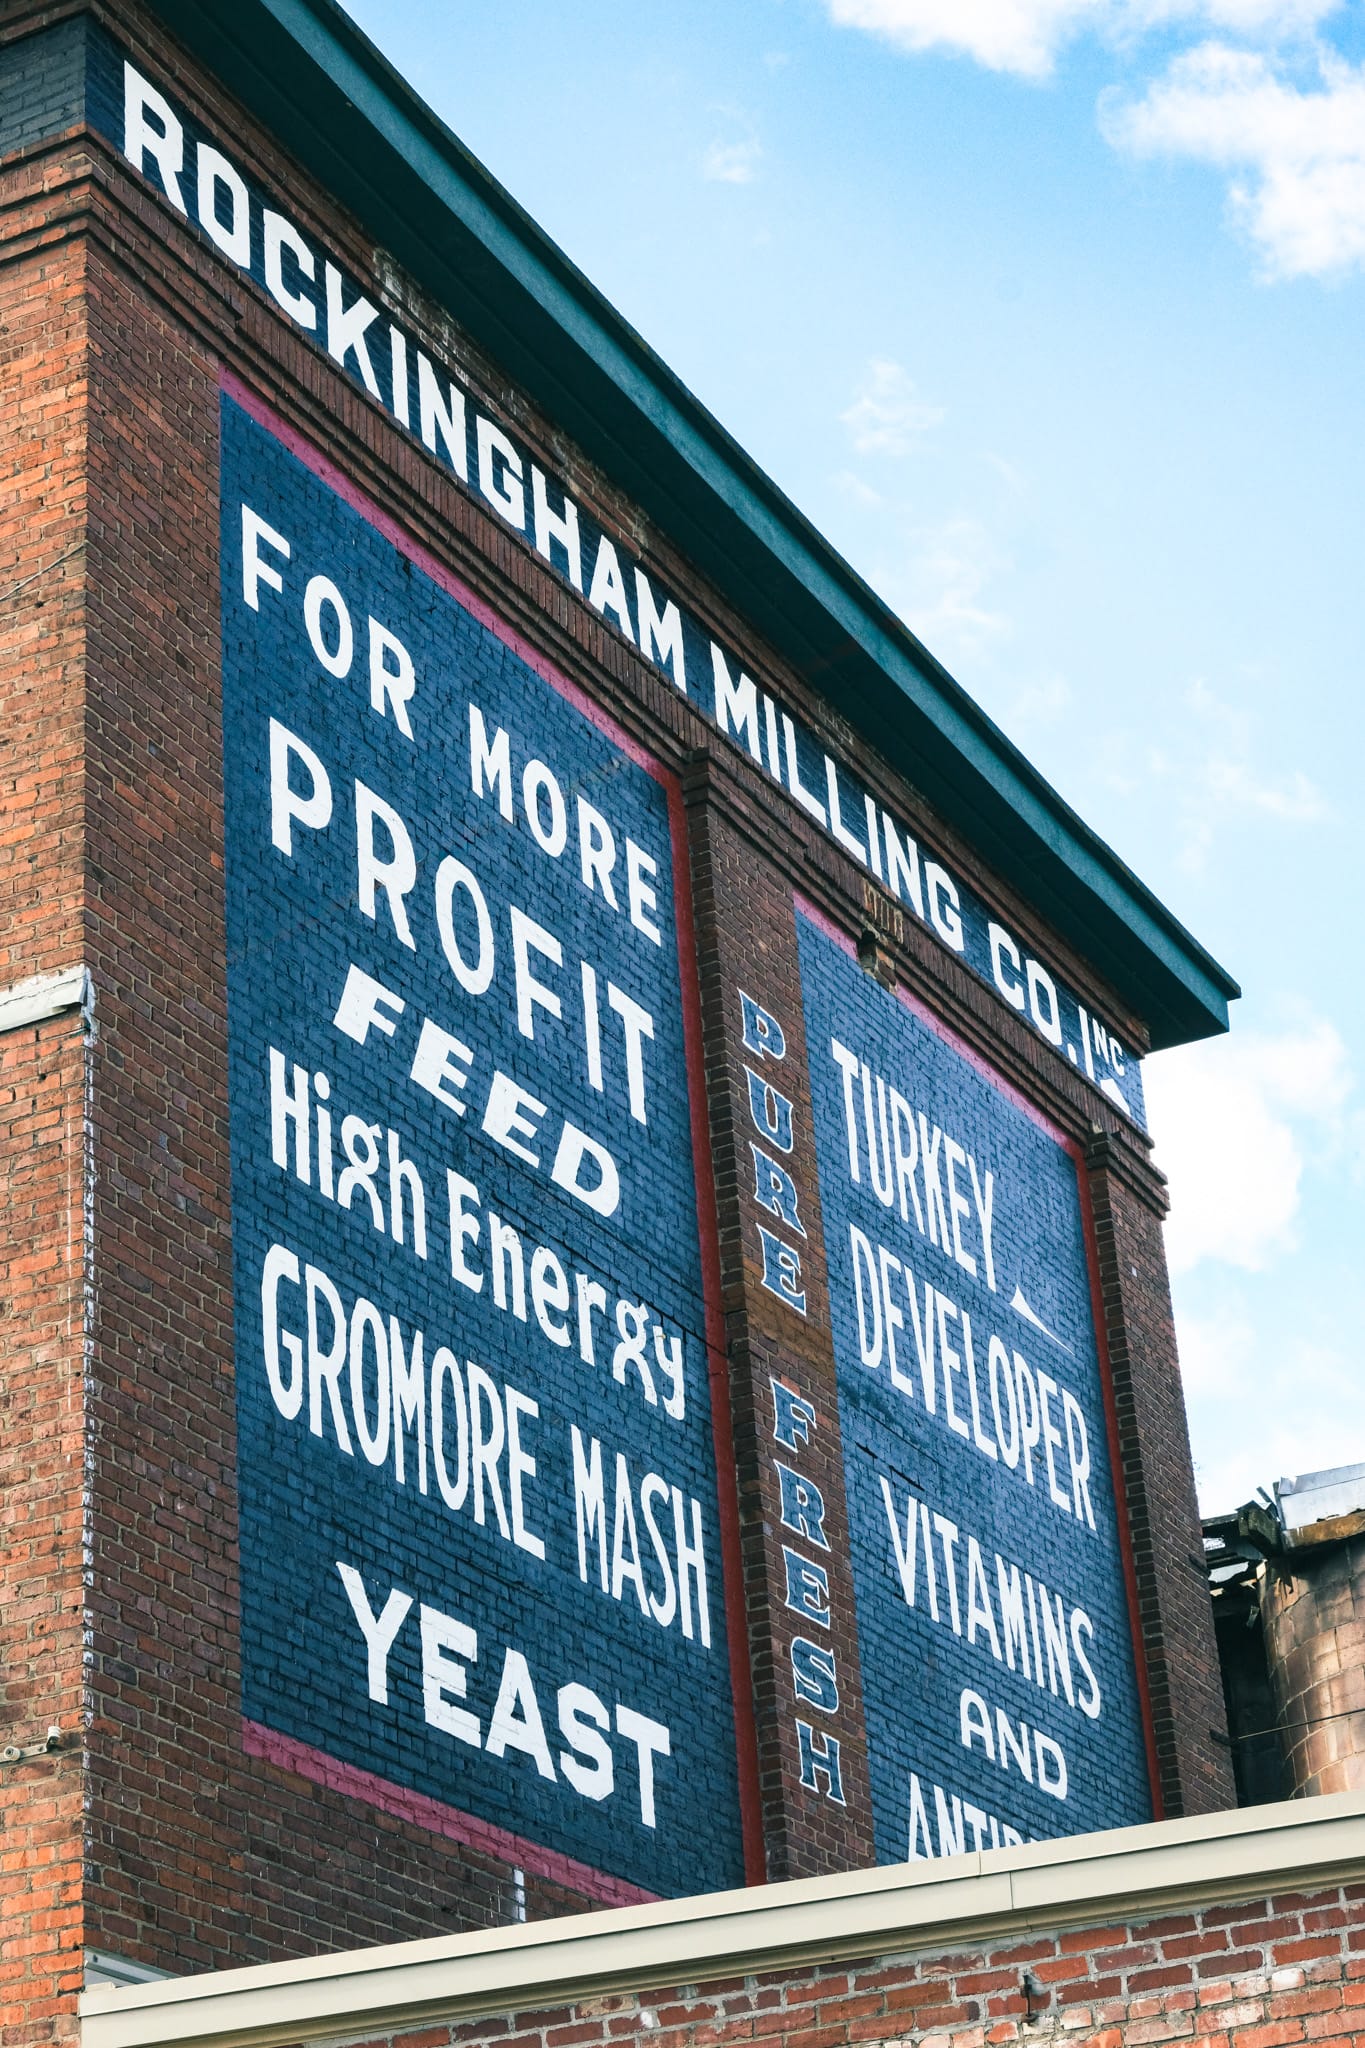 ROCKINGHAM MILLING CO. INC
FOR MORE
PROFIT
FEED
High Energy
GROMORE MASH
YEAST
PURE FRESH
TURKEY
DEVELOPER
VITAMINS
AND